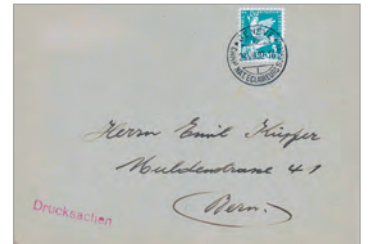 GENEVE
NAT. ECLAIREURS
Herrn Emil Küpfer
Muldenstrasse 41
Bern.
Drucksachen